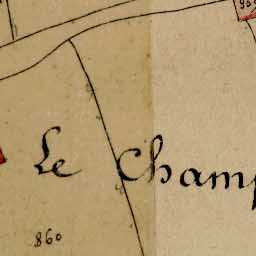 Le Champ
860